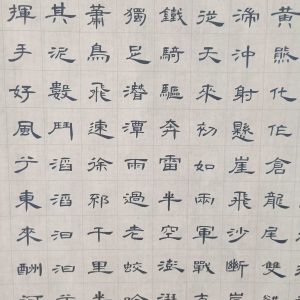 黃熊化作倉龍尾雙
沖射懸崖飛沙斷岸
從天來初如兩軍戰
鐵騎驅奔雷半空澎
獨足潛潭雨過老蛟吟
蕭鳥飛速徐千里
其泥數鬥滔滔汩汩
揮手好風兮東來酬